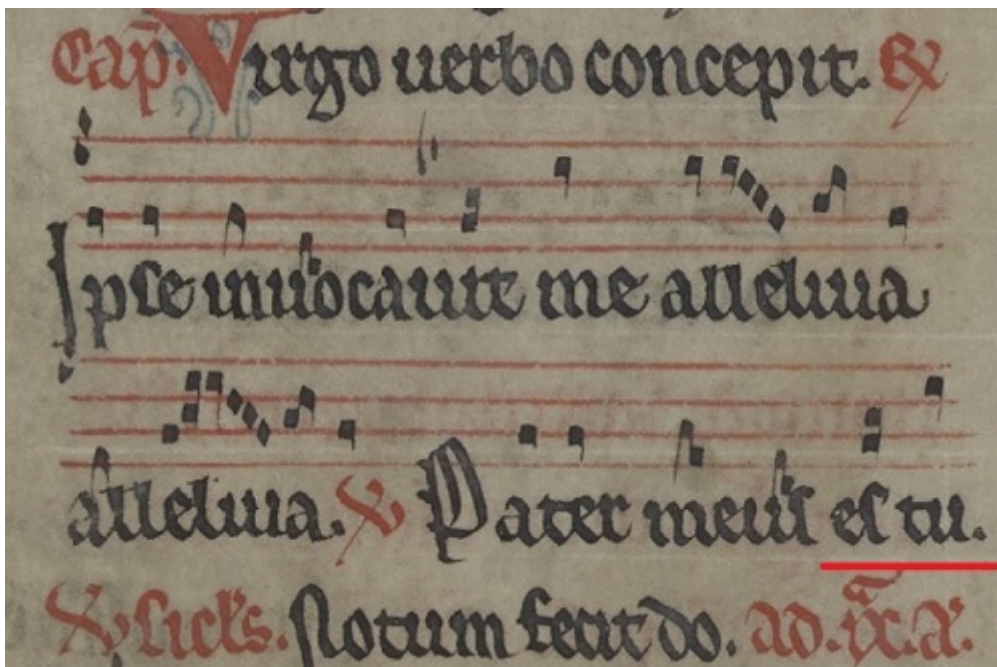 Cap̄. Virgo uerbo concepit. R℣
Ipse inuocauit me alleluia
alleluia. ℣ Pater meus es tu.
Notum fecit do.